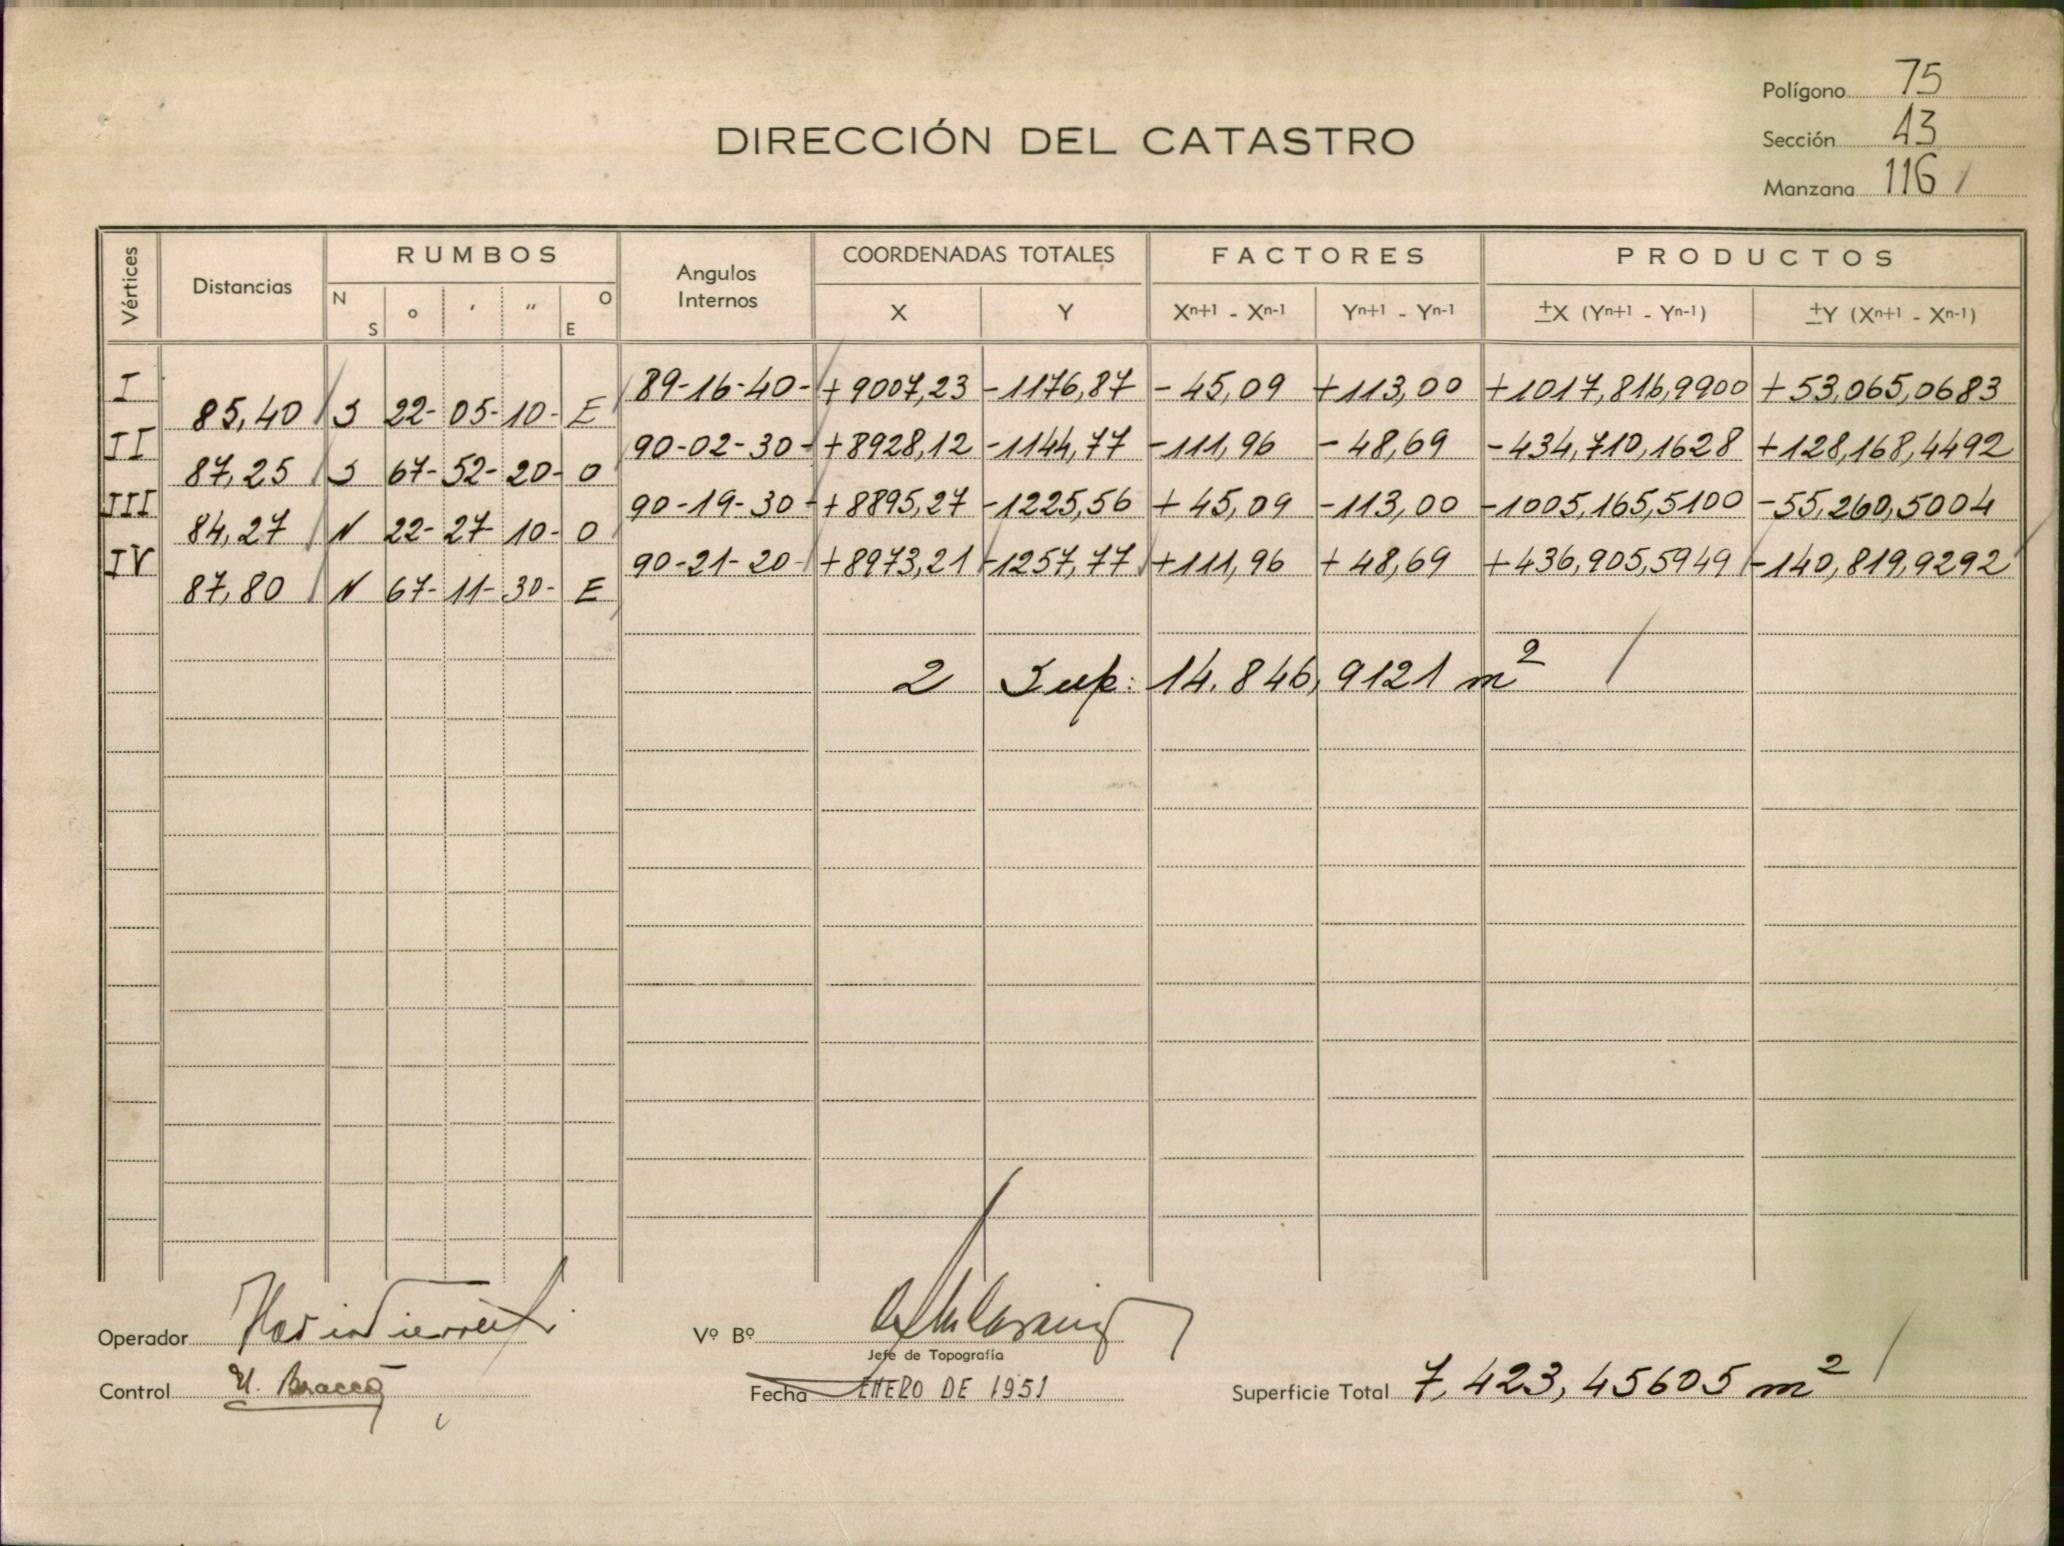 Polígono 75
DIRECCIÓN DEL CATASTRO
Sección 43
Manzana 116
Vértices Distancias RUMBOS Angulos Internos COORDENADAS TOTALES FACTORES PRODUCTOS
N S ° ' " O E X Y Xn+1 - Xn-1 Yn+1 - Yn-1 ±X (Yn+1 - Yn-1) ±Y (Xn+1 - Xn-1)
I 89-16-40- +9007,23 -1176,87 -45,09 +113,00 +1017,816,9900 +53,065,0683
85,40 S 22- 05- 10- E
II 90-02-30- +8928,12 -1144,77 -111,96 -48,69 -434,710,1628 +128,168,4492
87,25 S 67- 52- 20- O
III 90-19-30- +8895,27 -1225,56 +45,09 -113,00 -1005,165,5100 -55,260,5004
84,27 N 22- 27 10- O
IV 90-21-20- +8973,21 -1257,77 +111,96 +48,69 +436,905,5949 -140,819,9292
87,80 N 67- 11- 30- E
2 Sup: 14.846,9121 m²
Operador
Vº Bº
Jefe de Topografía
Control U. Bracco
Fecha ENERO DE 1951
Superficie Total 7,423,45605 m²